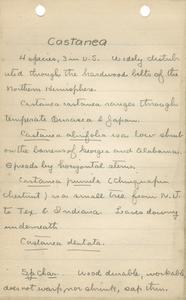 Castanea
4 species, 3 in U.S. Widely distrib-
uted through the hardwood belts of the
Northern Hemisphere.
Castanea castanea ranges through
temperate Eurasia & Japan.
Castanea alnifolia is a low shrub
on the barrens of Georgia and Alabama.
Spreads by horizontal stems.
Castanea pumila (Chinquapin
chestnut) is a small tree from N.J.
to Tex & Indiana. Leaves downy
underneath
Castanea dentata.
Sp. char. Wood durable, workable
does not warp, nor shrink, sap thin.